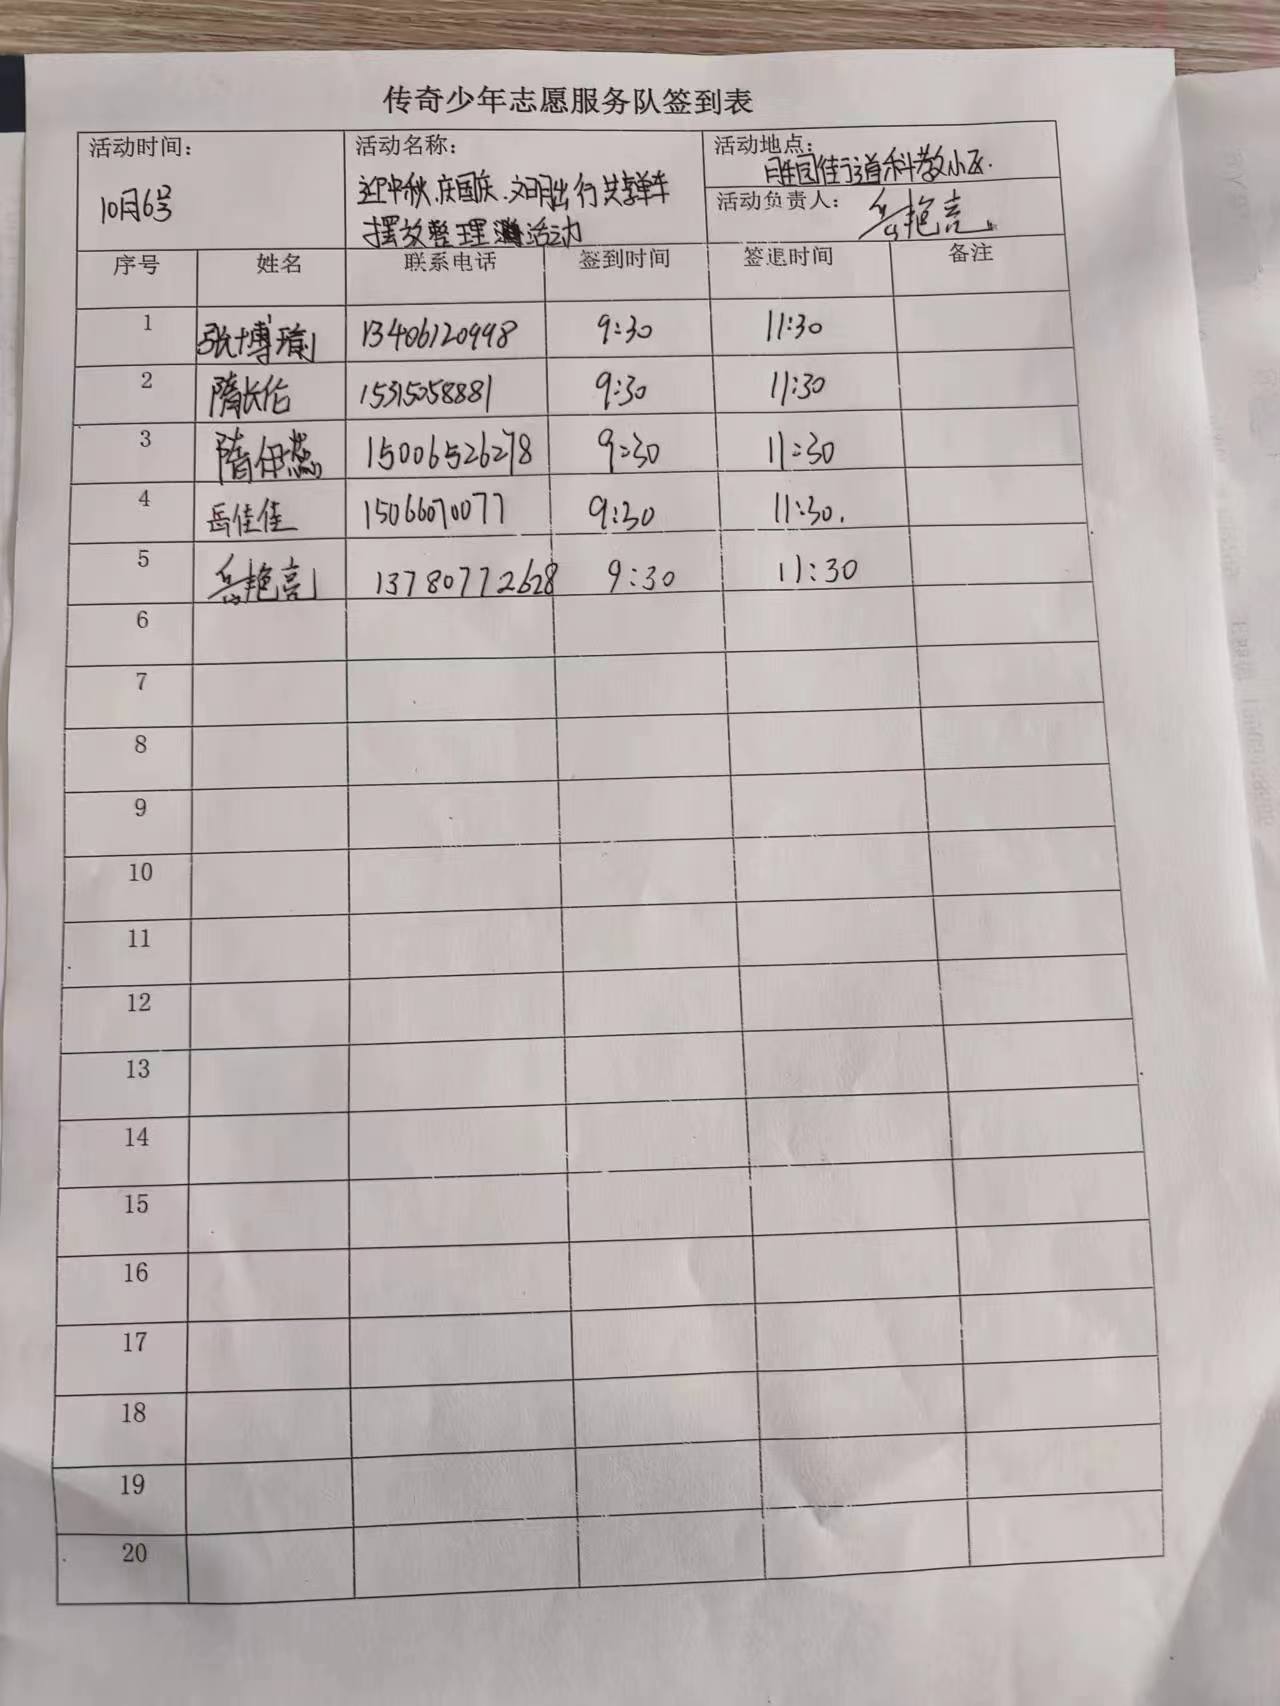 传奇少年志愿服务队签到表
活动时间: 活动名称: 活动地点:
10月6号 迎中秋、庆国庆、文明出行共享单车 胜园街道科教小区.
摆放整理 活动 活动负责人: 岳艳亮
序号 姓名 联系电话 签到时间 签退时间 备注
1 张博瑜 13406120998 9:30 11:30
2 隋长伦 15315058881 9:30 11:30
3 隋伊蕊 15006526278 9:30 11:30
4 岳佳佳 15066070077 9:30 11:30.
5 岳艳亮 13780772628 9:30 11:30
6
7
8
9
10
11
12
13
14
15
16
17
18
19
20